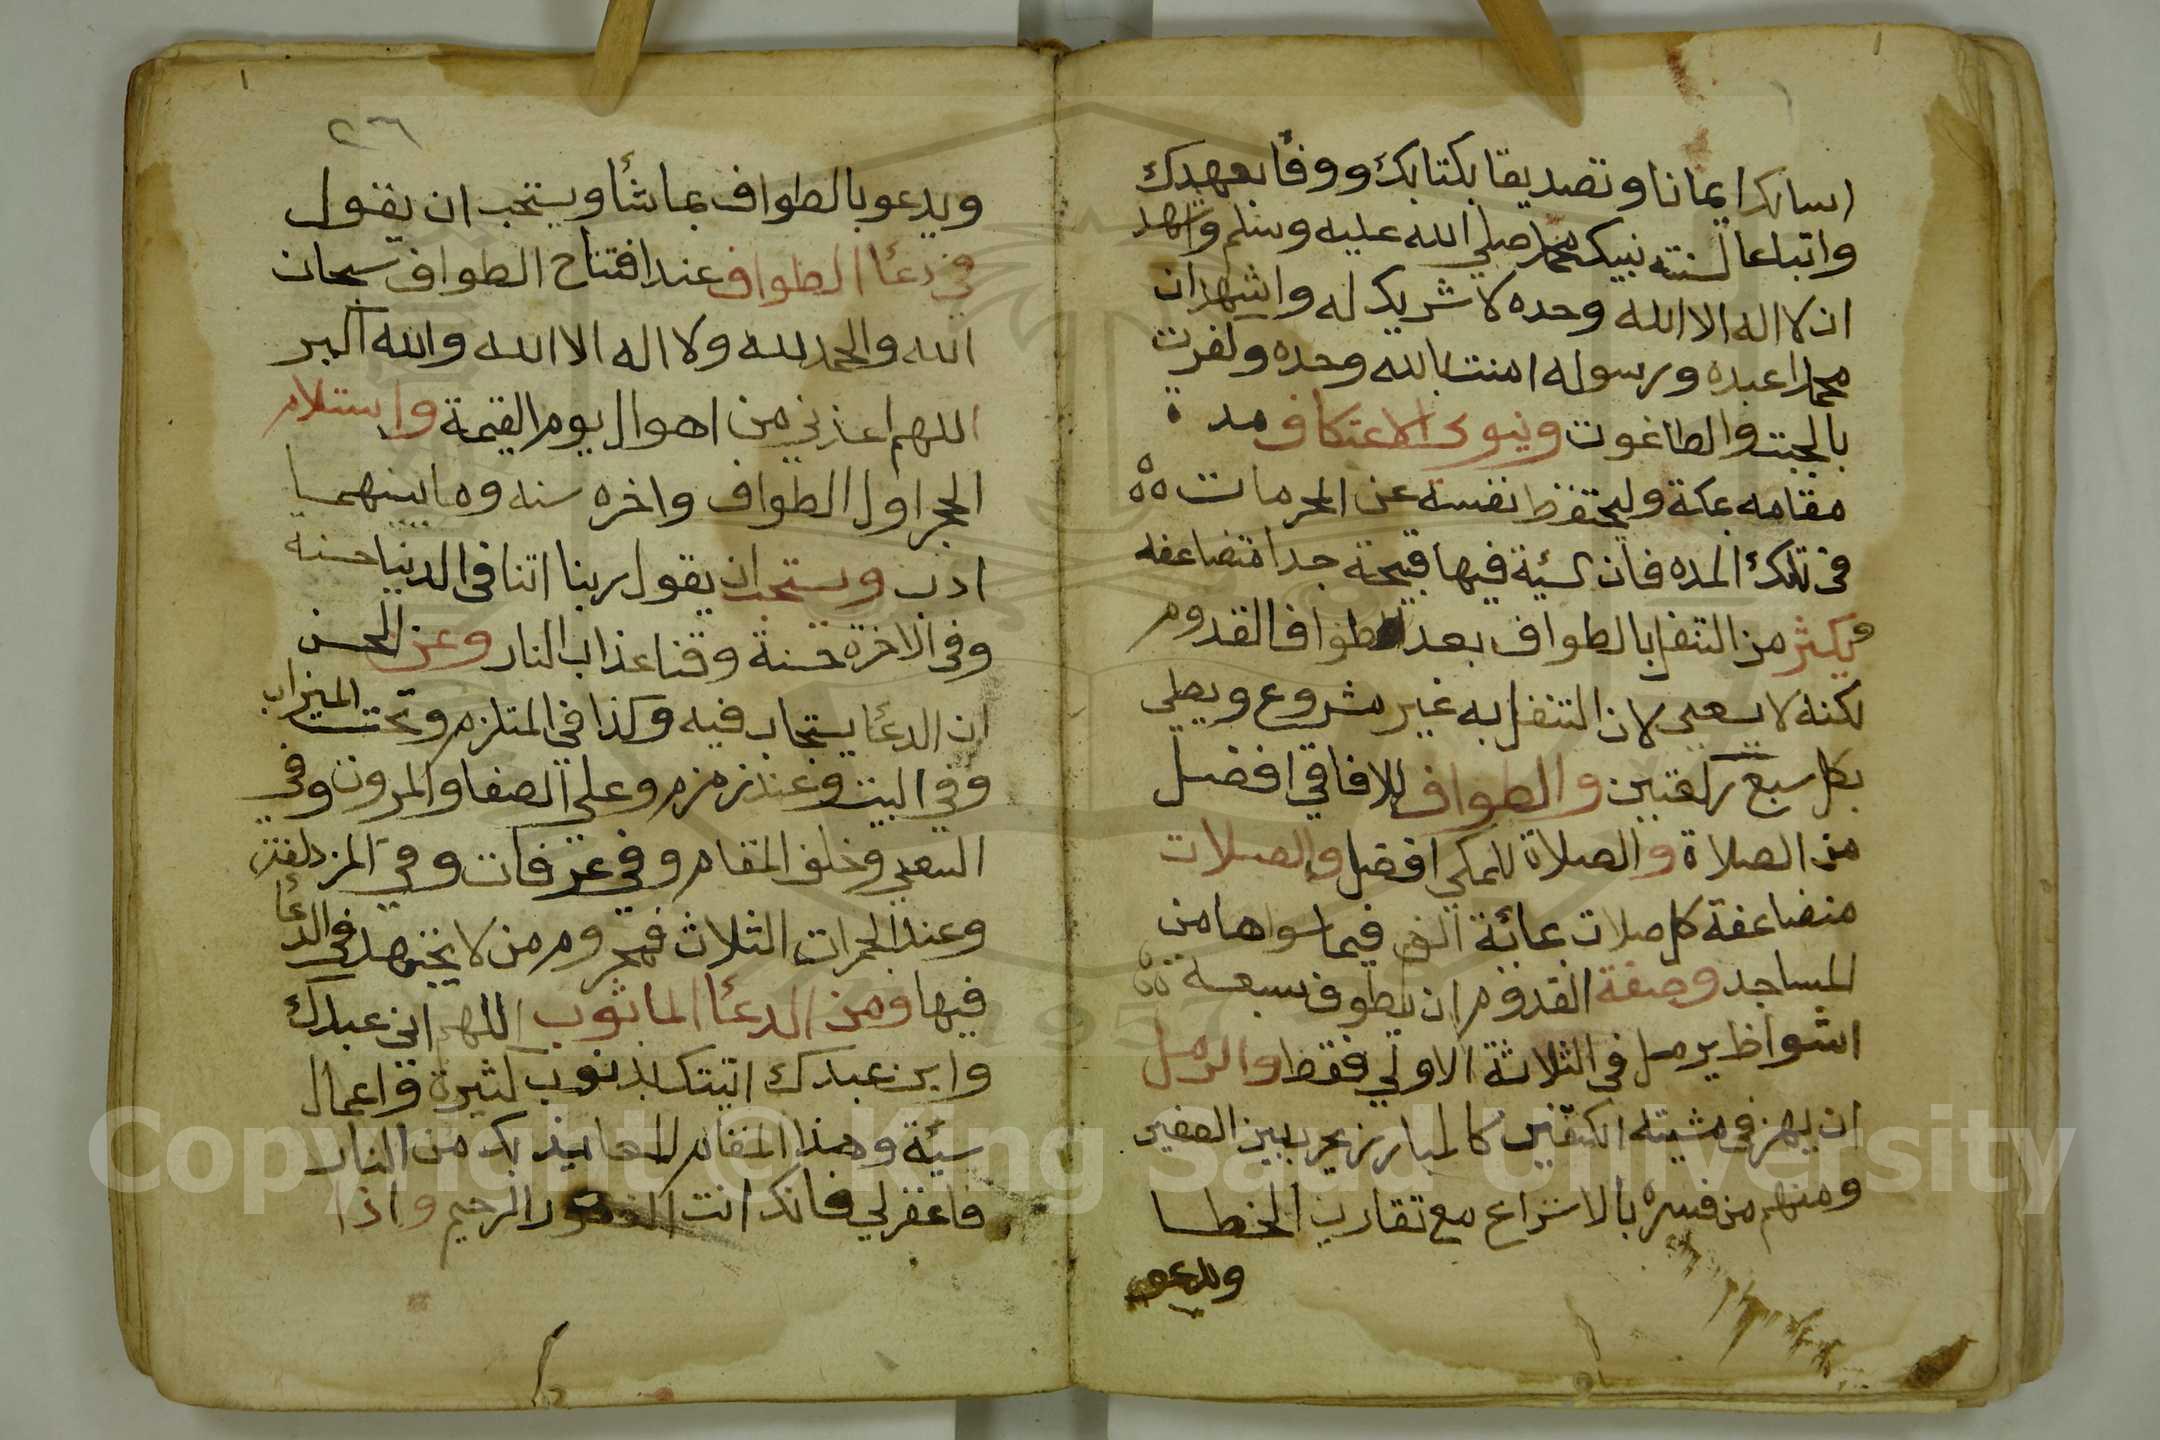 اسالك ايمانا وتصديقا بكتابك ووفًا بعهدك
واتباعا لسنته نبيك محمد صلي الله عليه وسلم واشهد
ان لا اله الا الله وحده لا شريك له واشهد ان
محمدا عبده ورسوله امنت بالله وحده وكفرت
بالجبت والطاغوت وينوي الاعتكاف مدة
مقامه بمكة وليحتفظ نفسه عن المحرمات
في تلك المده فان لسئية فيها قبيحة جدا متضاعفه
ويكثر من التنفل بالطواف بعد طواف القدوم
لكنه لا يسعي لان التنفل به غير مشروع ويصلي
بكل سبع ركعتين والطواف للافاقي افضل
من الصلاة والصلاة للمكي افضل والصلات
متضاعفة كل صلات بمائة الف فيما سواها من
المساجد وصفة القدوم ان يطوف سبعة
اشواظ يرمل في الثلاثة الاولي فقط والرمل
ان يهز في مشيته الكتفين كالمبارز يحرب بين الصفين
ومنهم من فسره بالاسراع مع تقارب الخطا
ويدعو
٢٦
ويدعو بالطواف بما شأ ويستحب ان يقول
في دعًا الطواف عند افتتاح الطواف سبحان
الله والحمد لله ولا اله الا الله والله اكبر
اللهم اعذني من اهوال يوم القيمة واستلام
الحجر اول الطواف واخره سنه وما بينهما
ادب ويستحب ان يقول ربنا اتنا في الدنيا حسنه
وفي الاخرة حسنة وقنا عذاب النار وعن الحسن
ان الدعًا يستجاب فيه وكذا في الملتزم وتحت الميزاب
وفي البيت وعند زمزم وعلي الصفا والمرون وفي
السعي وخلف المقام وفي عرفات وفي المزدلفة
وعند الجمرات الثلاث فمحروم من لا يجتهد في الدعًا
فيها ومن الدعًا الماثوب اللهم اني عبدك
وابن عبدك اتيتك بذنوب كثيرة واعمال
سيئة وهذا المقام العايذ بك من النار
فاغفر لي فانك انت الغفور الرحيم واذا
Copyright © King Saud University
1957